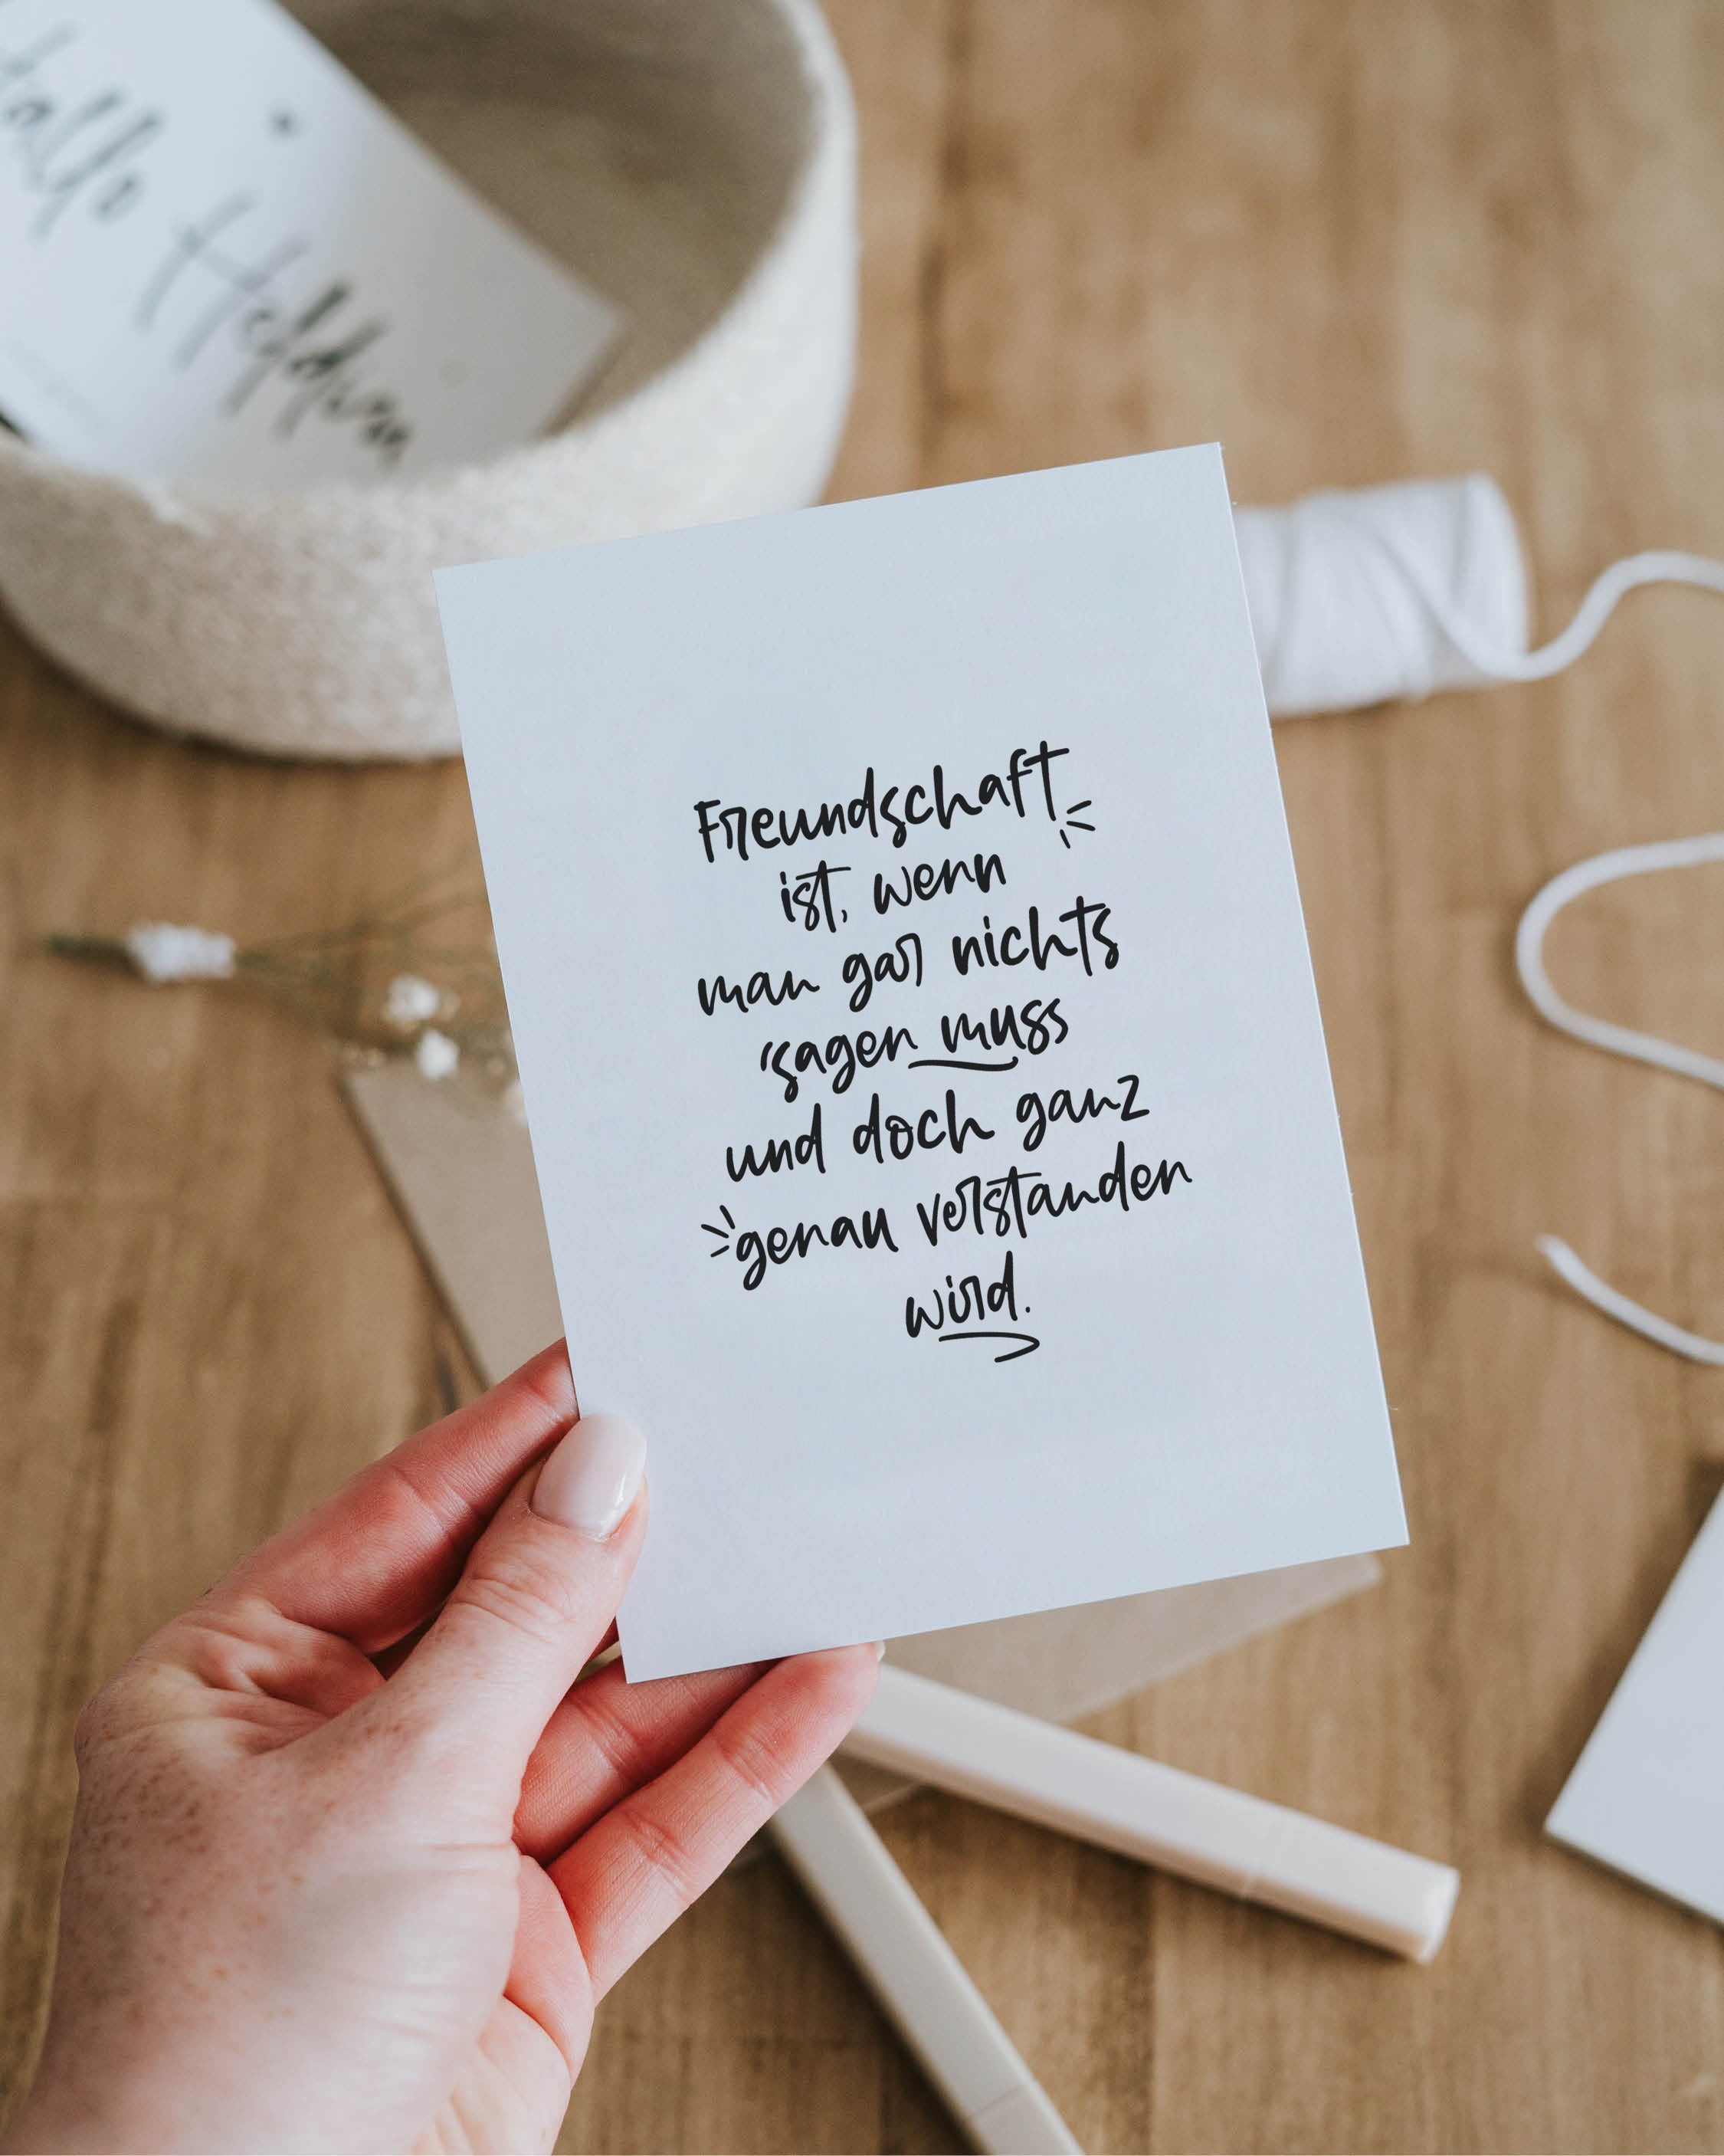 Hallo Heldin
Freundschaft
ist, wenn
man gar nichts
sagen muss
und doch ganz
genau verstanden
wird.